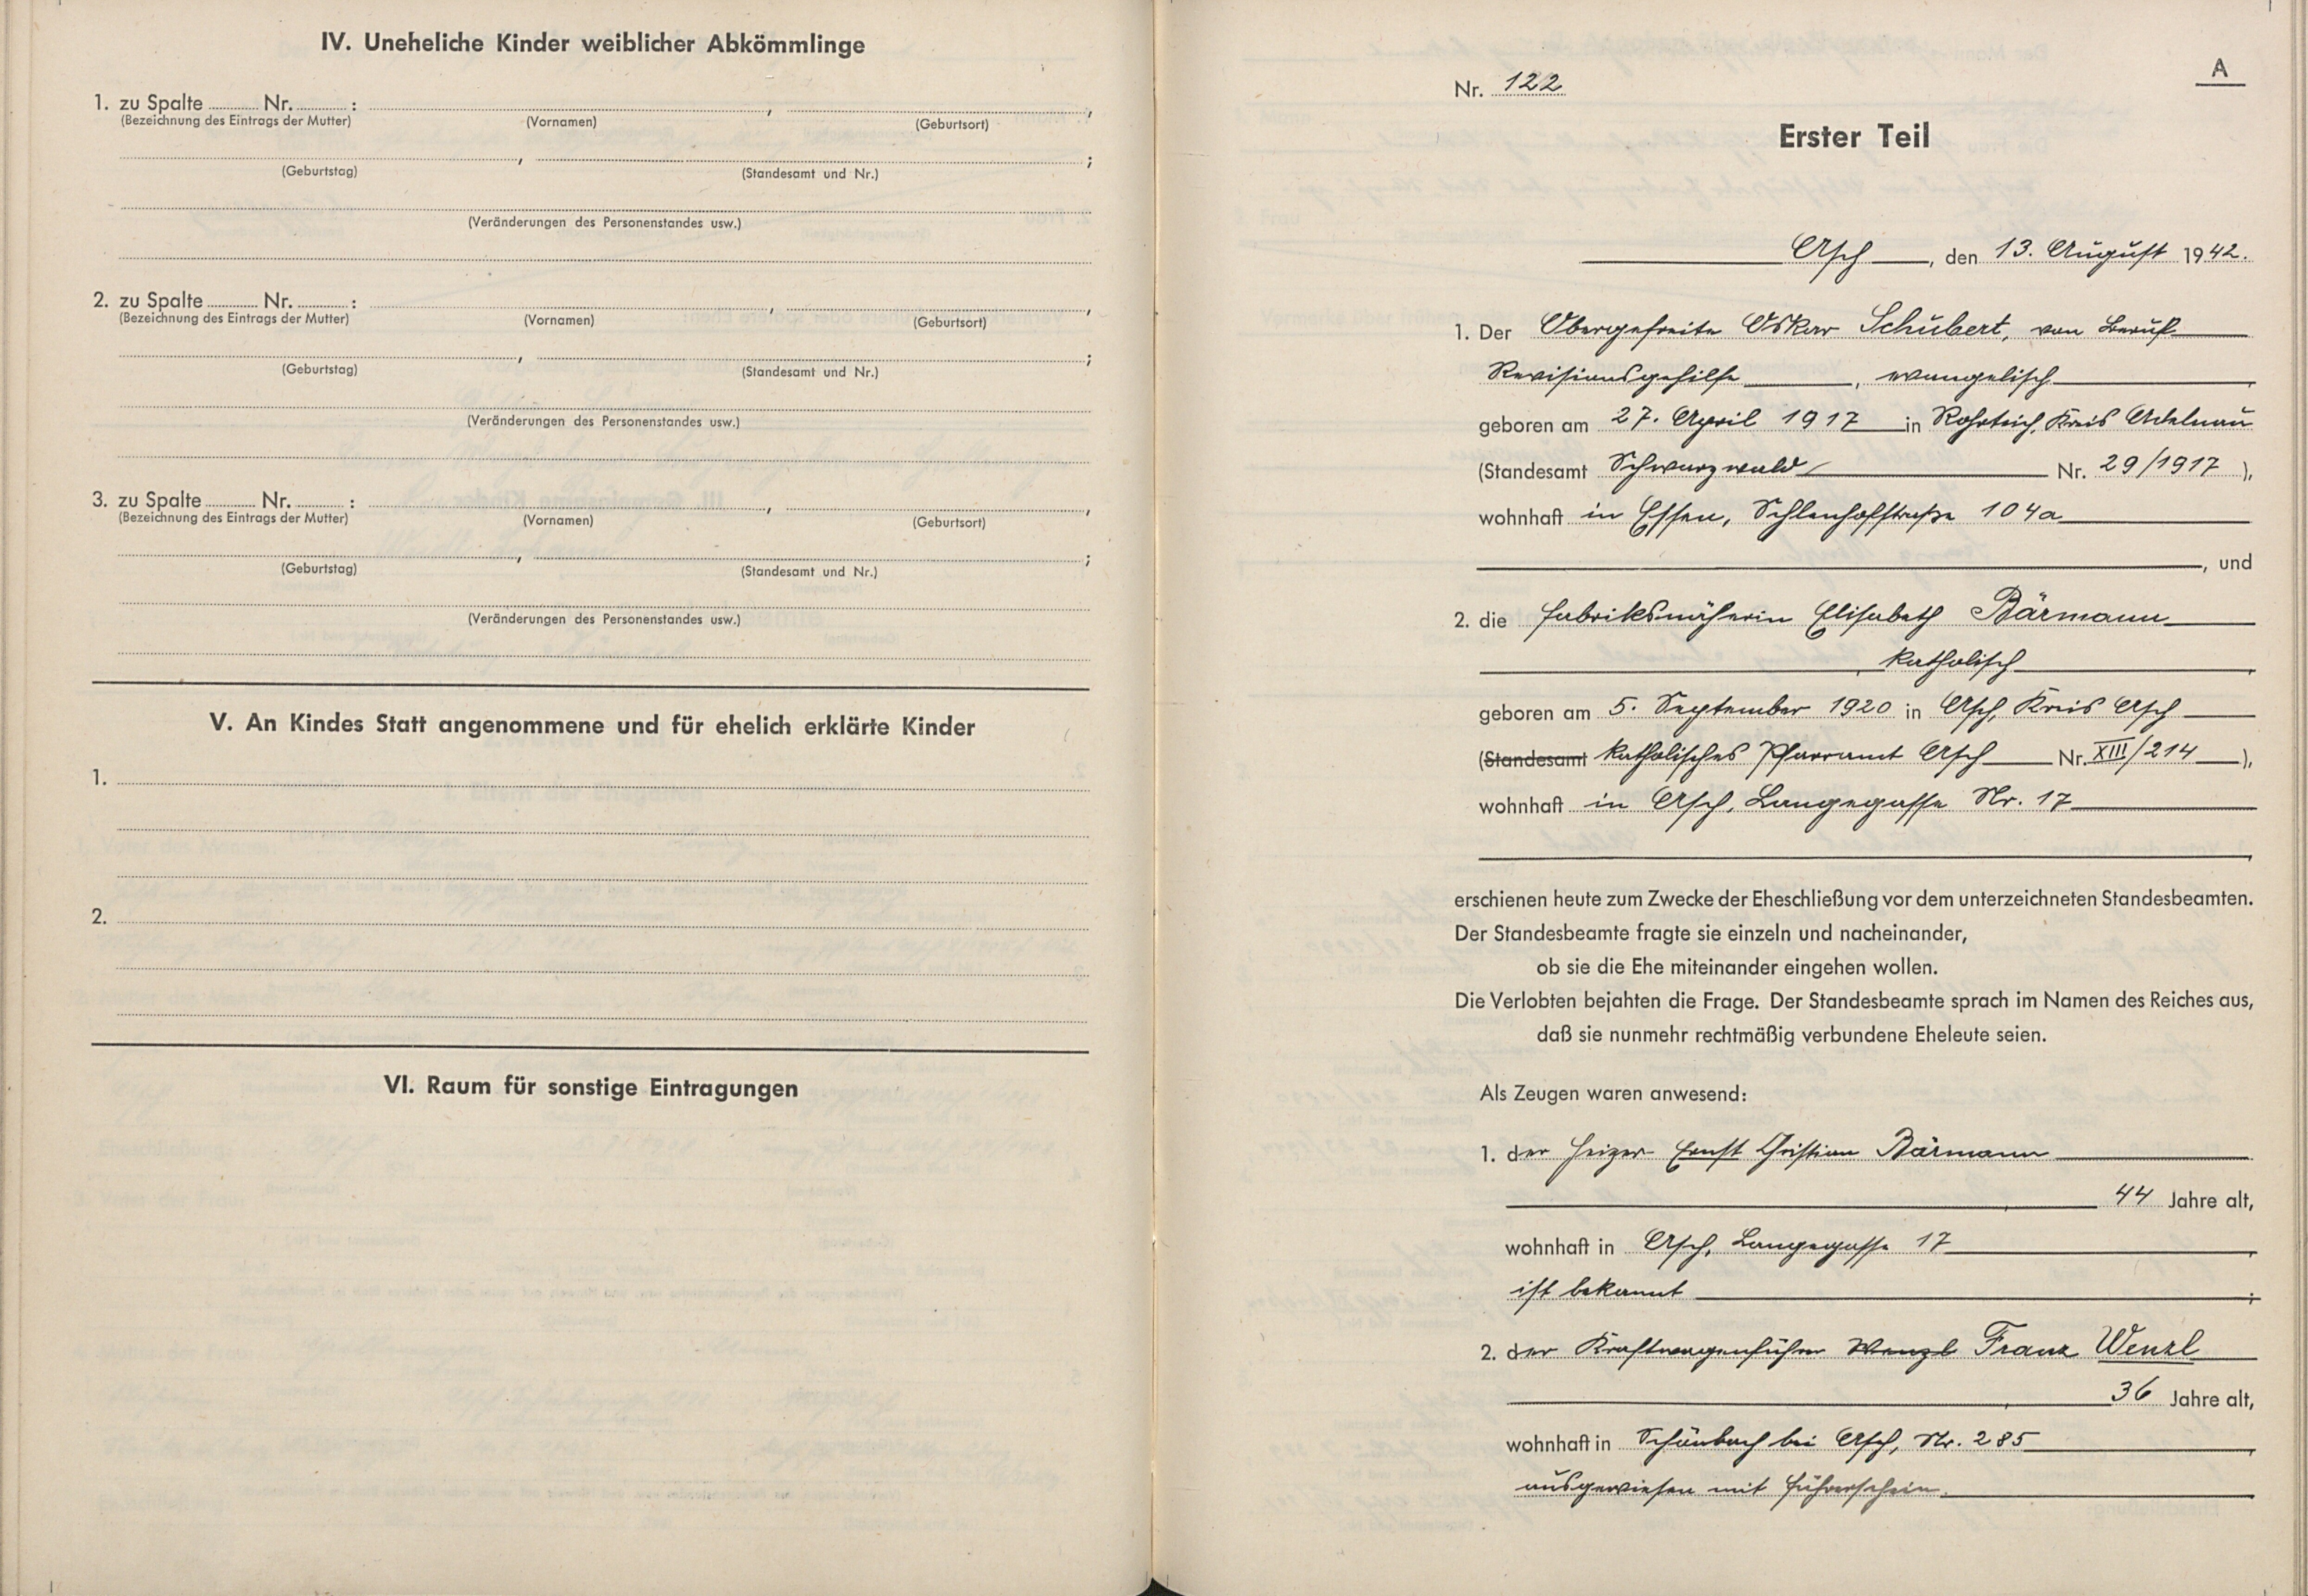 IV. Uneheliche Kinder weiblicher Abkömmlinge
1. zu Spalte ........ Nr. ........ :
(Bezeichnung des Eintrags der Mutter) (Vornamen) (Geburtsort)
(Geburtstag) (Standesamt und Nr.)
(Veränderungen des Personenstandes usw.)
2. zu Spalte ........ Nr. ........ :
(Bezeichnung des Eintrags der Mutter) (Vornamen) (Geburtsort)
(Geburtstag) (Standesamt und Nr.)
(Veränderungen des Personenstandes usw.)
3. zu Spalte ........ Nr. ........ :
(Bezeichnung des Eintrags der Mutter) (Vornamen) (Geburtsort)
(Geburtstag) (Standesamt und Nr.)
(Veränderungen des Personenstandes usw.)
V. An Kindes Statt angenommene und für ehelich erklärte Kinder
1.
2.
VI. Raum für sonstige Eintragungen
A
Nr. 122
Erster Teil
Asch, den 13. August 1942.
1. Der Obergefreite Oskar Schubert, von Beruf
Revisionsgehilfe, evangelisch,
geboren am 27. April 1917 in Rohrteich, Kreis Adelnau
(Standesamt Schwarzwald Nr. 29/1917),
wohnhaft in Essen, Schlenhofstraße 104a
, und
2. die Fabriksnäherin Elisabeth Bärmann
, katholisch,
geboren am 5. September 1920 in Asch, Kreis Asch
(Standesamt katholisches Pfarramt Asch Nr. XIII/214),
wohnhaft in Asch, Langegasse Nr. 17
,
erschienen heute zum Zwecke der Eheschließung vor dem unterzeichneten Standesbeamten.
Der Standesbeamte fragte sie einzeln und nacheinander,
ob sie die Ehe miteinander eingehen wollen.
Die Verlobten bejahten die Frage. Der Standesbeamte sprach im Namen des Reiches aus,
daß sie nunmehr rechtmäßig verbundene Eheleute seien.
Als Zeugen waren anwesend:
1. der Heizer Ernst Christian Bärmann
, 44 Jahre alt,
wohnhaft in Asch, Langegasse 17,
ist bekannt;
2. der Kraftwagenführer Wenzl Franz Wenzl
, 36 Jahre alt,
wohnhaft in Schönbach bei Asch, Nr. 285,
ausgewiesen mit Führerschein.